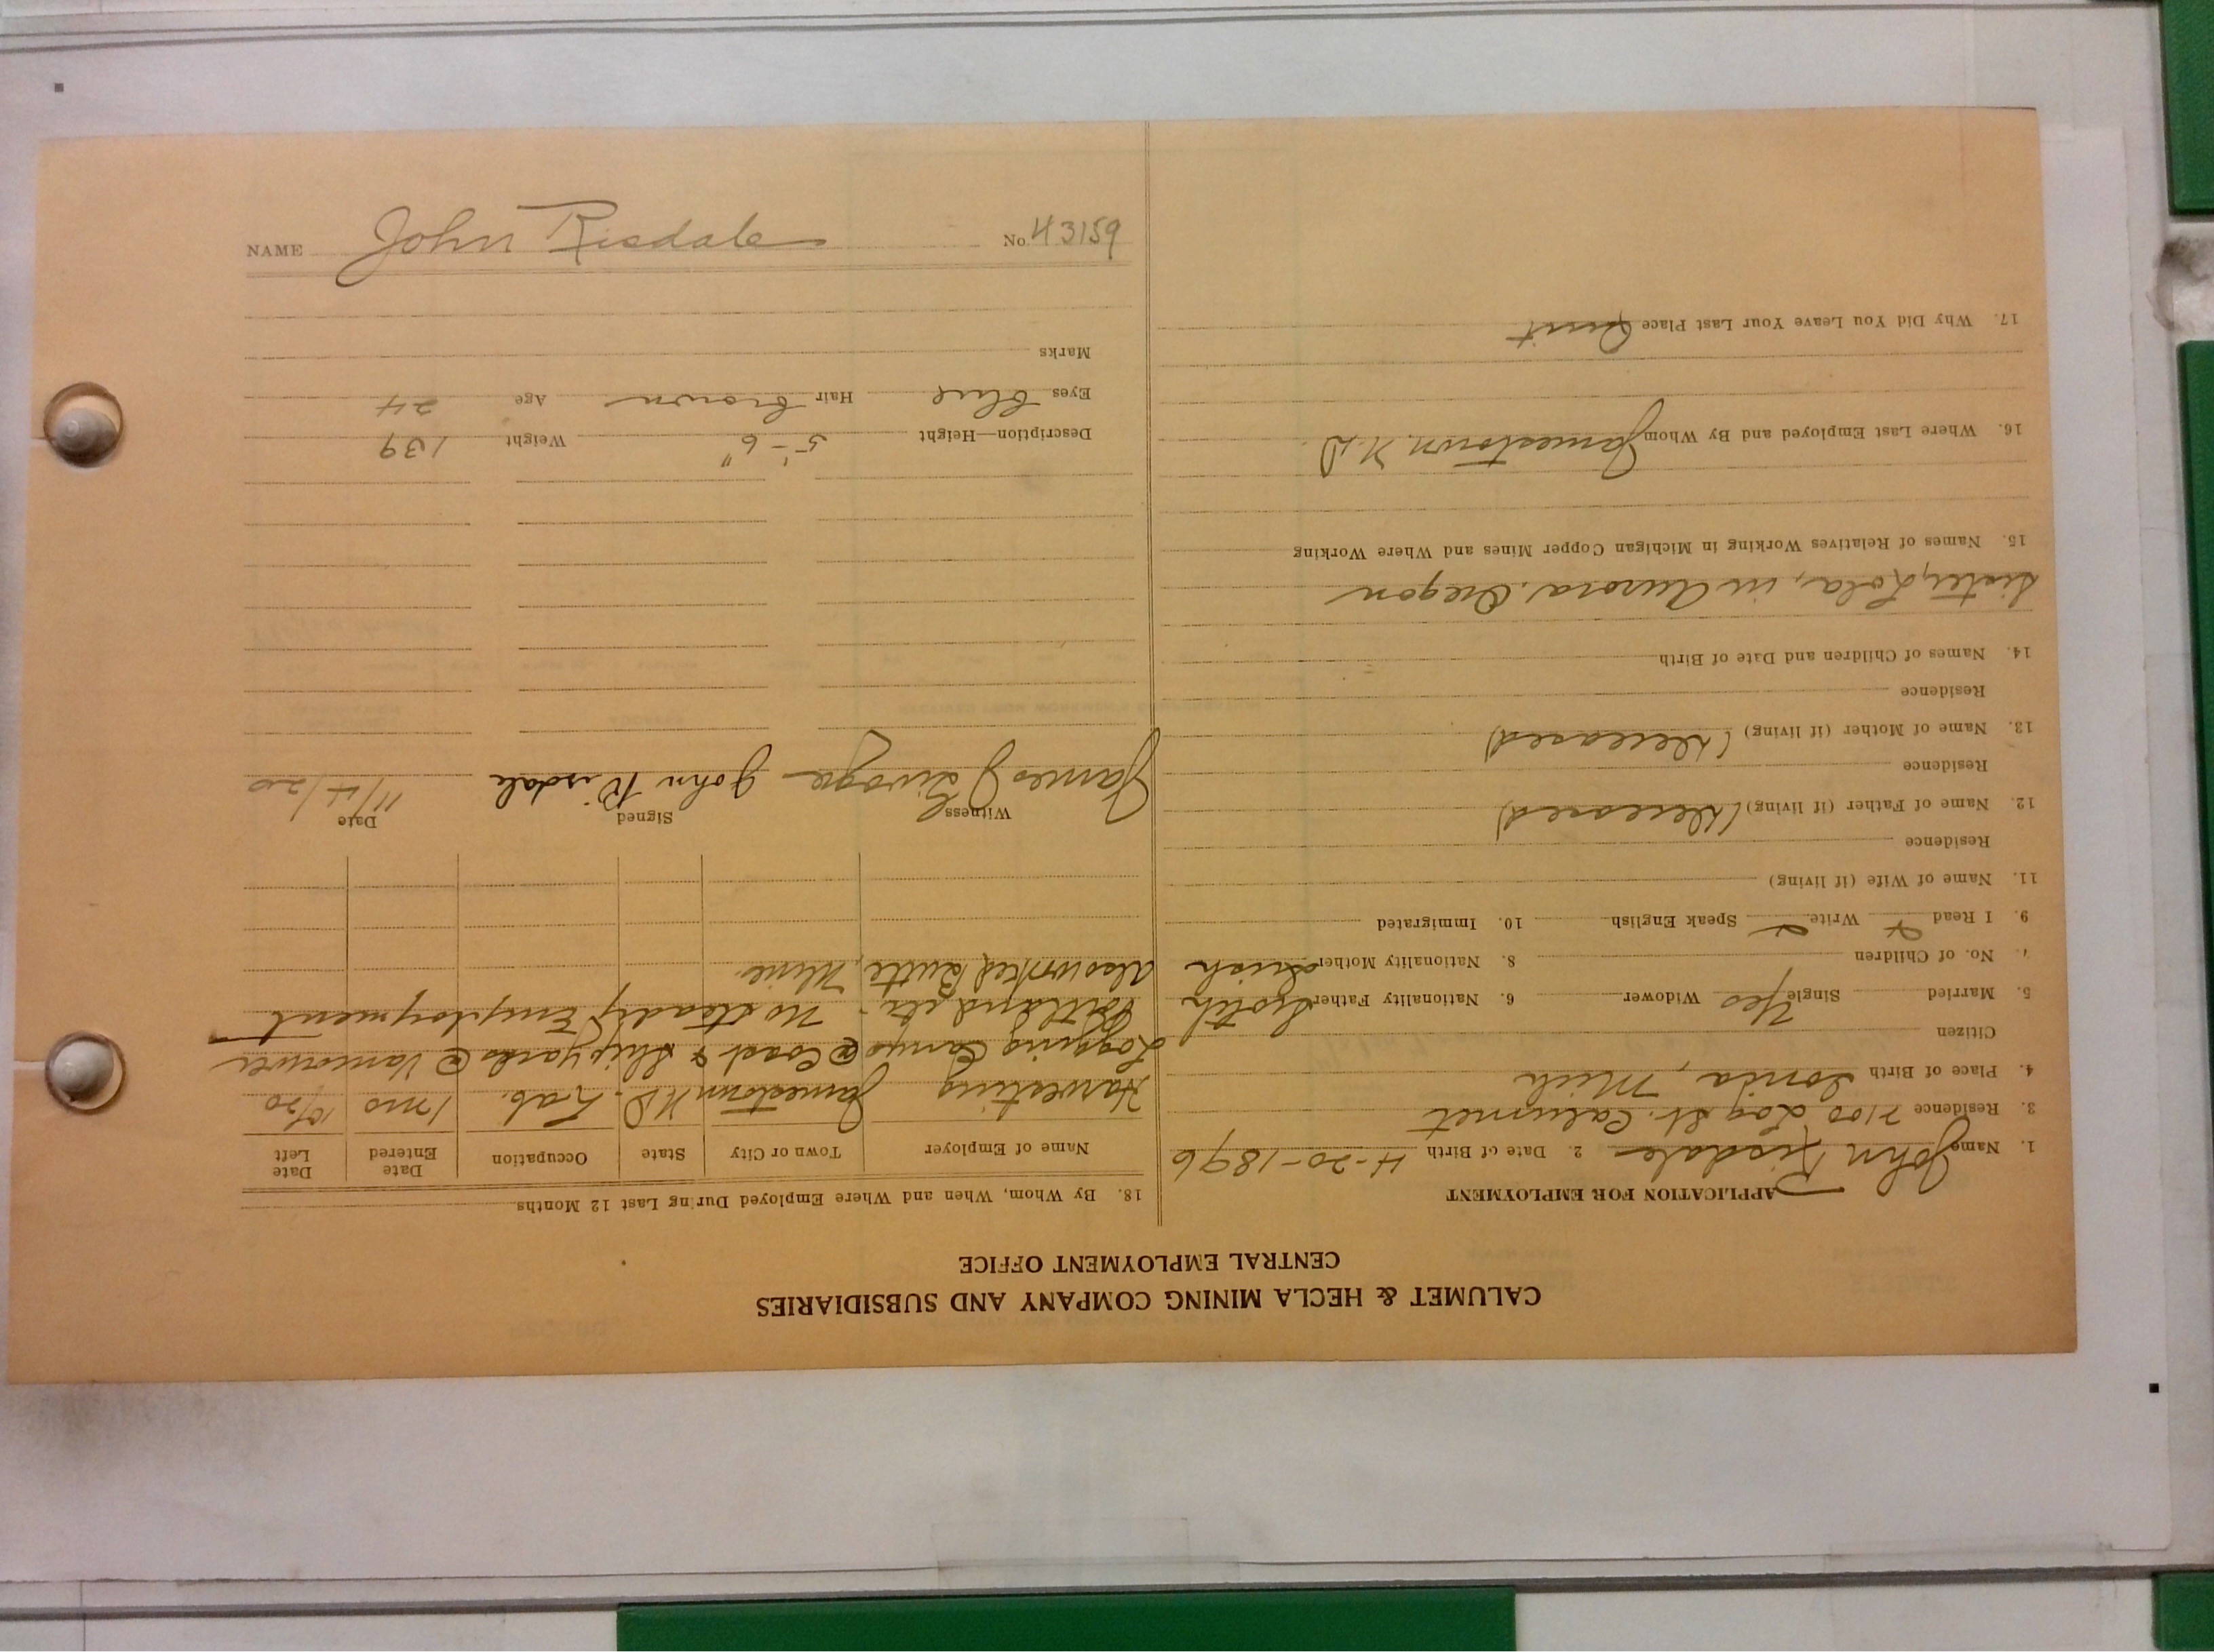 CALUMET & HECLA MINING COMPANY AND SUBSIDIARIES
CENTRAL EMPLOYMENT OFFICE
APPLICATION FOR EMPLOYMENT
1. Name John Risdale 2. Date of Birth 4-20-1896
3. Residence 2100 Log St. Calumet
4. Place of Birth Ionia, Mich
Citizen
5. Married Single Yes Widower 6. Nationality Father Scotch
7. No. of Children 8. Nationality Mother Irish
9. I Read Write Speak English 10. Immigrated
11. Name of Wife (if living)
Residence
12. Name of Father (if living) (Deceased)
Residence
13. Name of Mother (if living) (Deceased)
Residence
14. Names of Children and Date of Birth
Sister, Lola, in Aurora, Oregon
15. Names of Relatives Working in Michigan Copper Mines and Where Working
16. Where Last Employed and By Whom Jamestown N.D.
17. Why Did You Leave Your Last Place Quit
18. By Whom, When and Where Employed During Last 12 Months.
Name of Employer Town or City State Occupation Date Entered Date Left
Harvesting Jamestown N.D. Lab. 1 mo 10/20
Logging Camps @ Coast & Ship Yards @ Vancouver
Portland etc - No steady Employment
Also worked Butte, Mine
Witness Signed Date
James John Risdale 11/4/20
Description—Height 5'-6" Weight 139
Eyes Blue Hair Brown Age 24
Marks
NAME John Risdale No. 43159